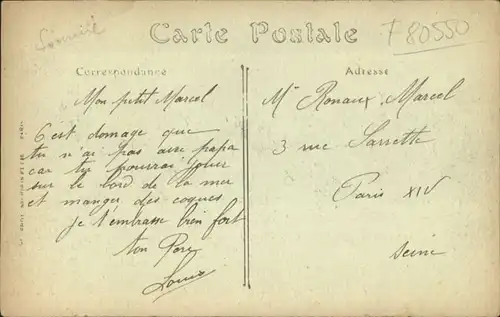 Carte Postale
F 80550
Correspondance
Adresse
Mon petit Marcel
C'est domage que
tu n'ai pas avec papa
car tu pourrai jouer
sur le bord de la mer
et manger des coques
je t'embrasse bien fort
ton Pere
Louis
Mr Ronaux Marcel
3 rue Sarrette
Paris XIV
Seine